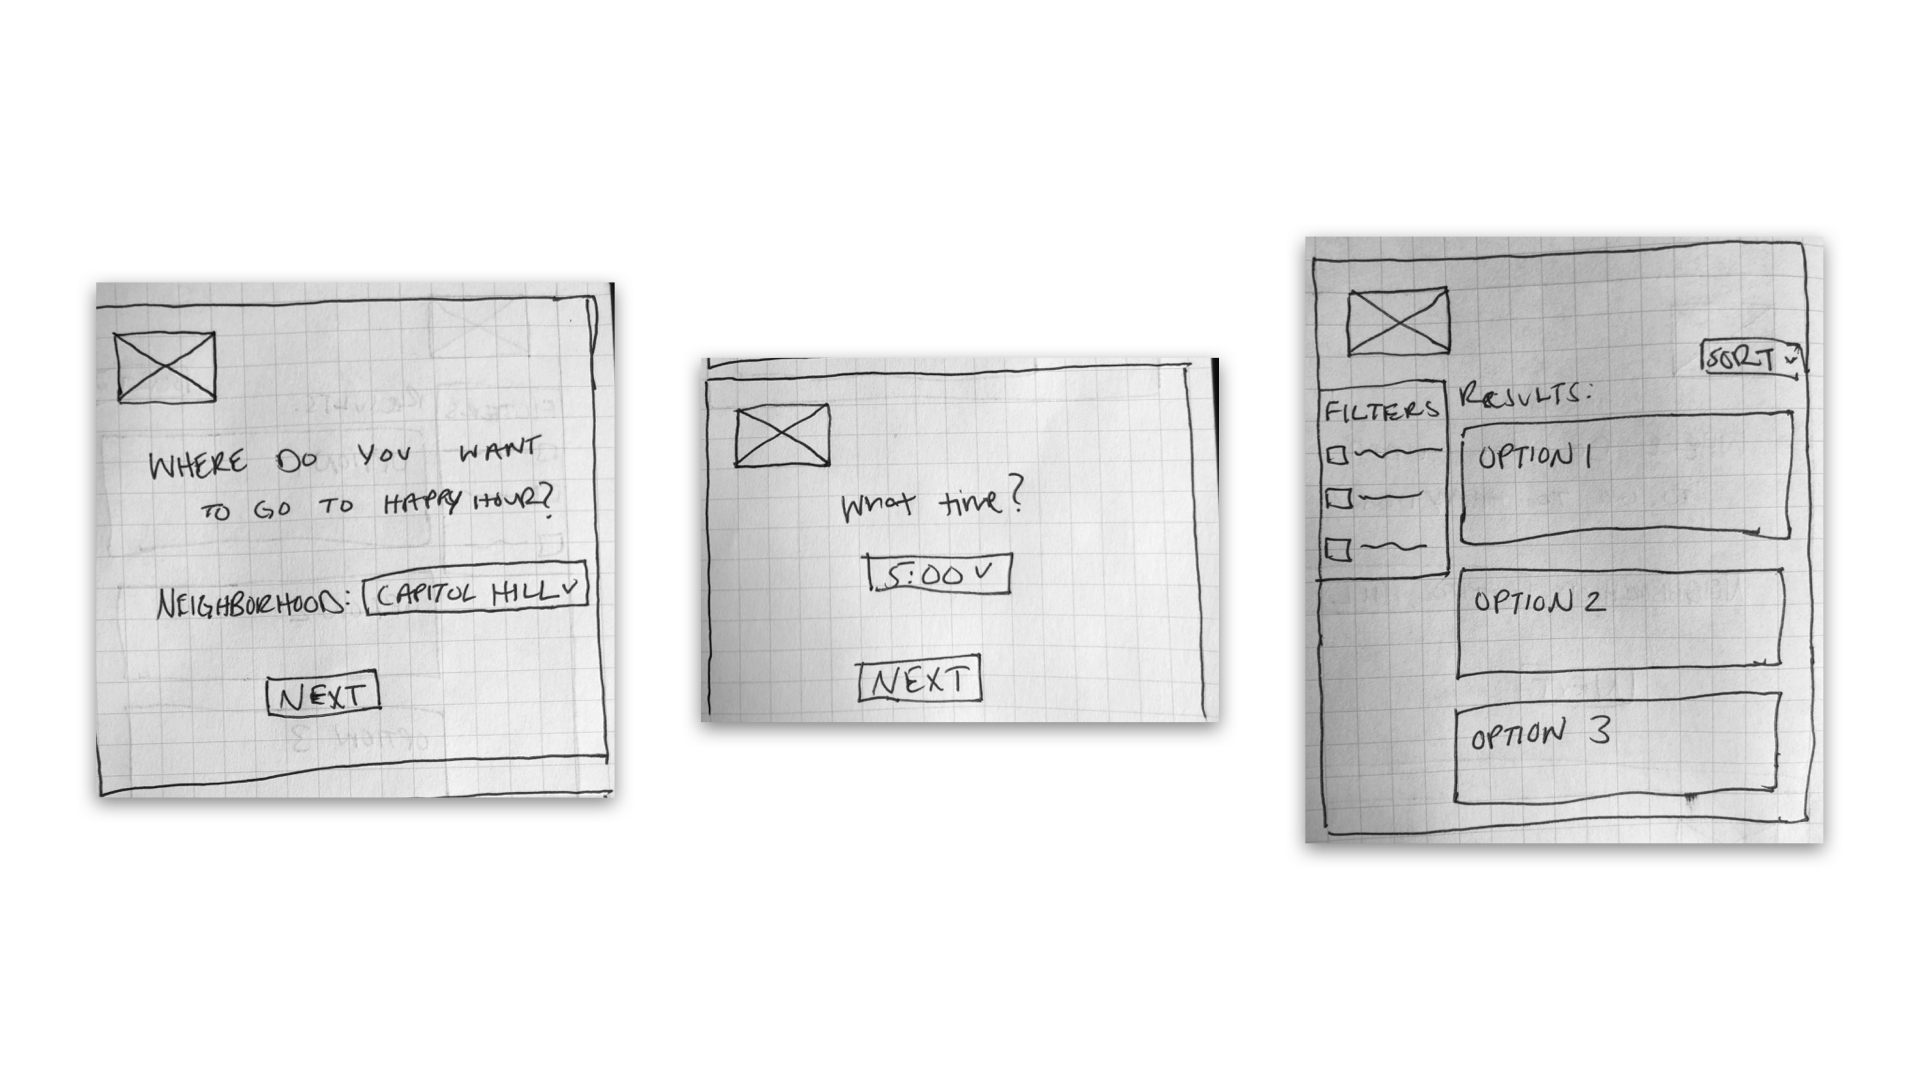 WHERE DO YOU WANT
TO GO TO HAPPY HOUR?
NEIGHBORHOOD: CAPITOL HILL
NEXT
What time?
5:00
NEXT
SORT
FILTERS
RESULTS:
OPTION 1
OPTION 2
OPTION 3